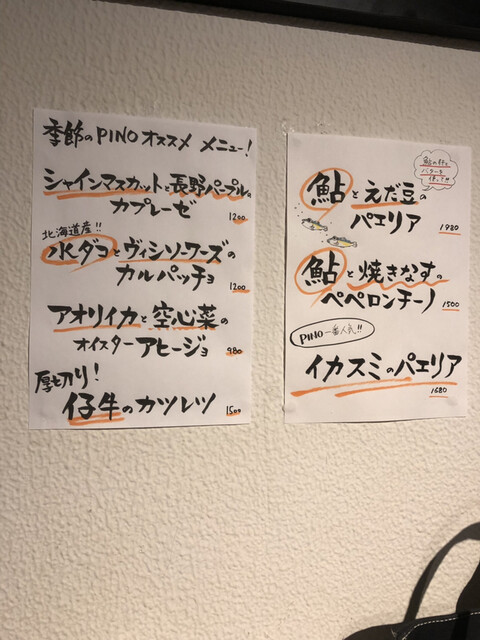 季節のPINOオススメ メニュー!
シャインマスカットと長野パープルの
カプレーゼ
1200
北海道産!!
水ダコとヴィシソワーズの
カルパッチョ
1200
アオリイカと空心菜の
オイスターアヒージョ
980
厚切り!
仔牛のカツレツ
1500
鮎の肝と
バターを
使って!!
鮎とえだ豆の
パエリア
1980
鮎と焼きなすの
ペペロンチーノ
1500
PINO一番人気!!
イカスミのパエリア
1680